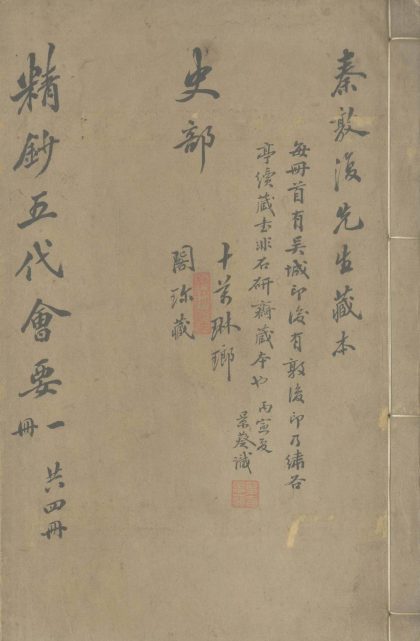 秦敦復先生藏本
每冊首有吳城印後有敦復印乃繡谷
亭續藏書非石研齋藏本也 丙寅夏
景葵識
史部
十萬琳瑯
閣珍藏
精鈔五代會要一冊 共四冊